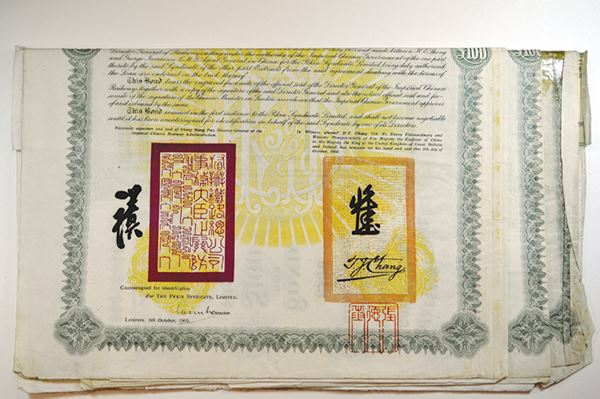 £100
£100
Director General of Railways acting under the authority of the Imperial Chinese Government of the one part
and George Jamieson C.M.G. Agent General in China for the Pekin Syndicate Limited being duly authorized
thereto by the said Syndicate of the other part. Extracts from the said agreement dealing with the terms of
the Loan are endorsed on the back thereof.
This Bond bears the engraved facsimile of the official seal of the Director General of the Imperial Chinese
Railways together with a copy of the signature of the said Director General and also the
of the minister of the Chinese in London, as evidence that the Imperial Chinese Government approves
of and is bound by the same.
This Bond is issued in the first instance to the Pekin Syndicate Limited, and shall not become negotiable
until it has been countersigned for identification on behalf of the said Syndicate by one of its Directors.
Facsimile signature and seal of Sheng Kung Pao, Director-General of the
Imperial Chinese Railway Administration.
In Witness whereof H.E. Chang Teh Yi, Envoy Extraordinary and
Minister Plenipotentiary of His Majesty the Emperor of China
to His Majesty the King of the United Kingdom of Great Britain
and Ireland has hereunto set his hand and seal this 5th day of
October, 1905.
T. Y. Chang
Countersigned for identification
For THE PEKIN SYNDICATE, LIMITED.
Director.
LONDON, 5th October, 1905.